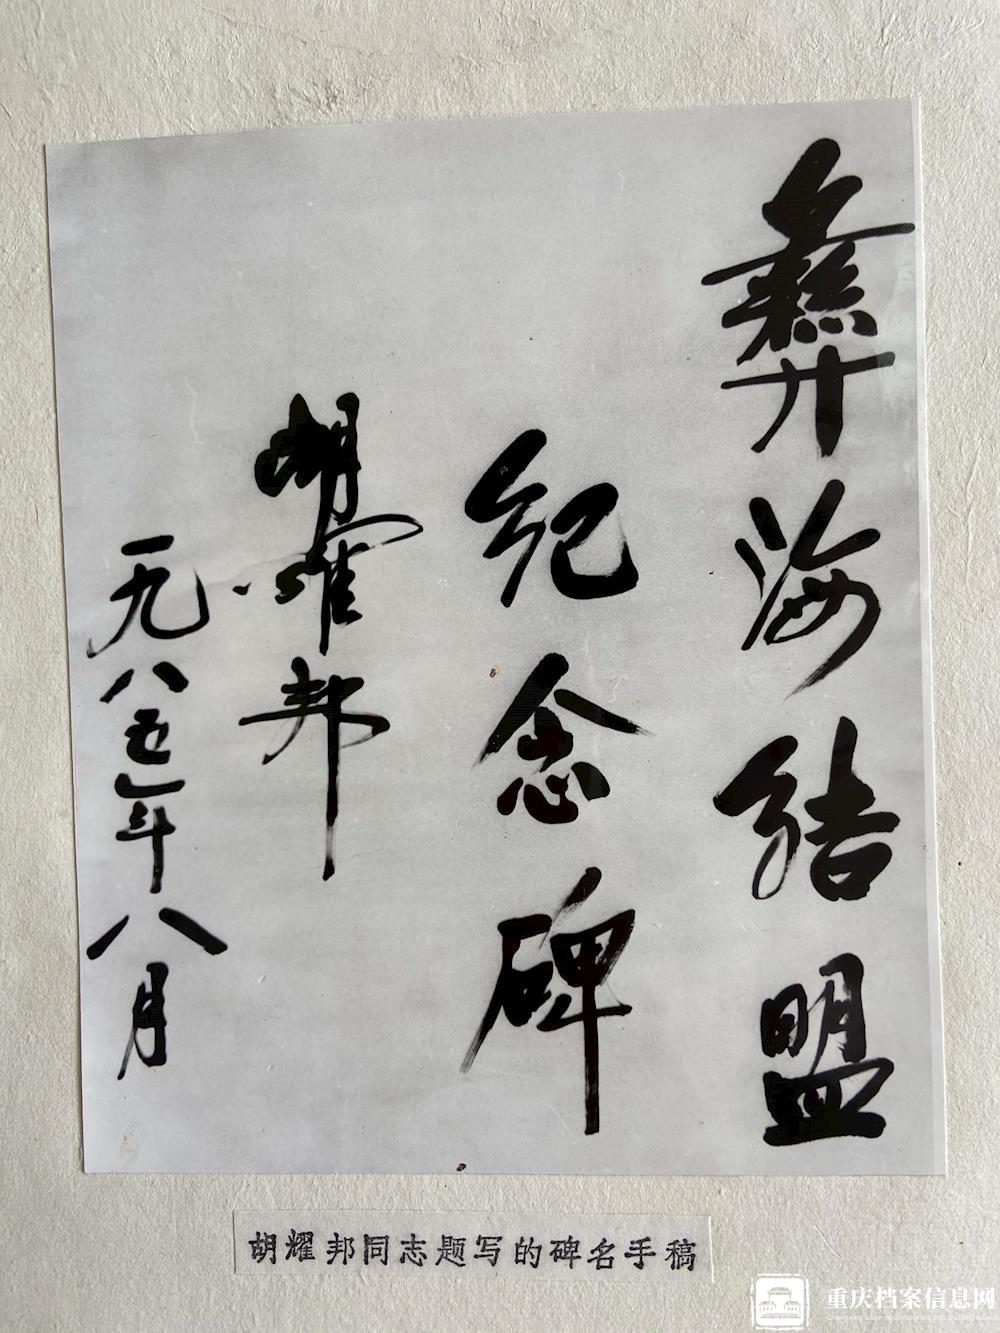 彝海结盟
纪念碑
胡耀邦
一九八五年八月
胡耀邦同志题写的碑名手稿
重庆档案信息网